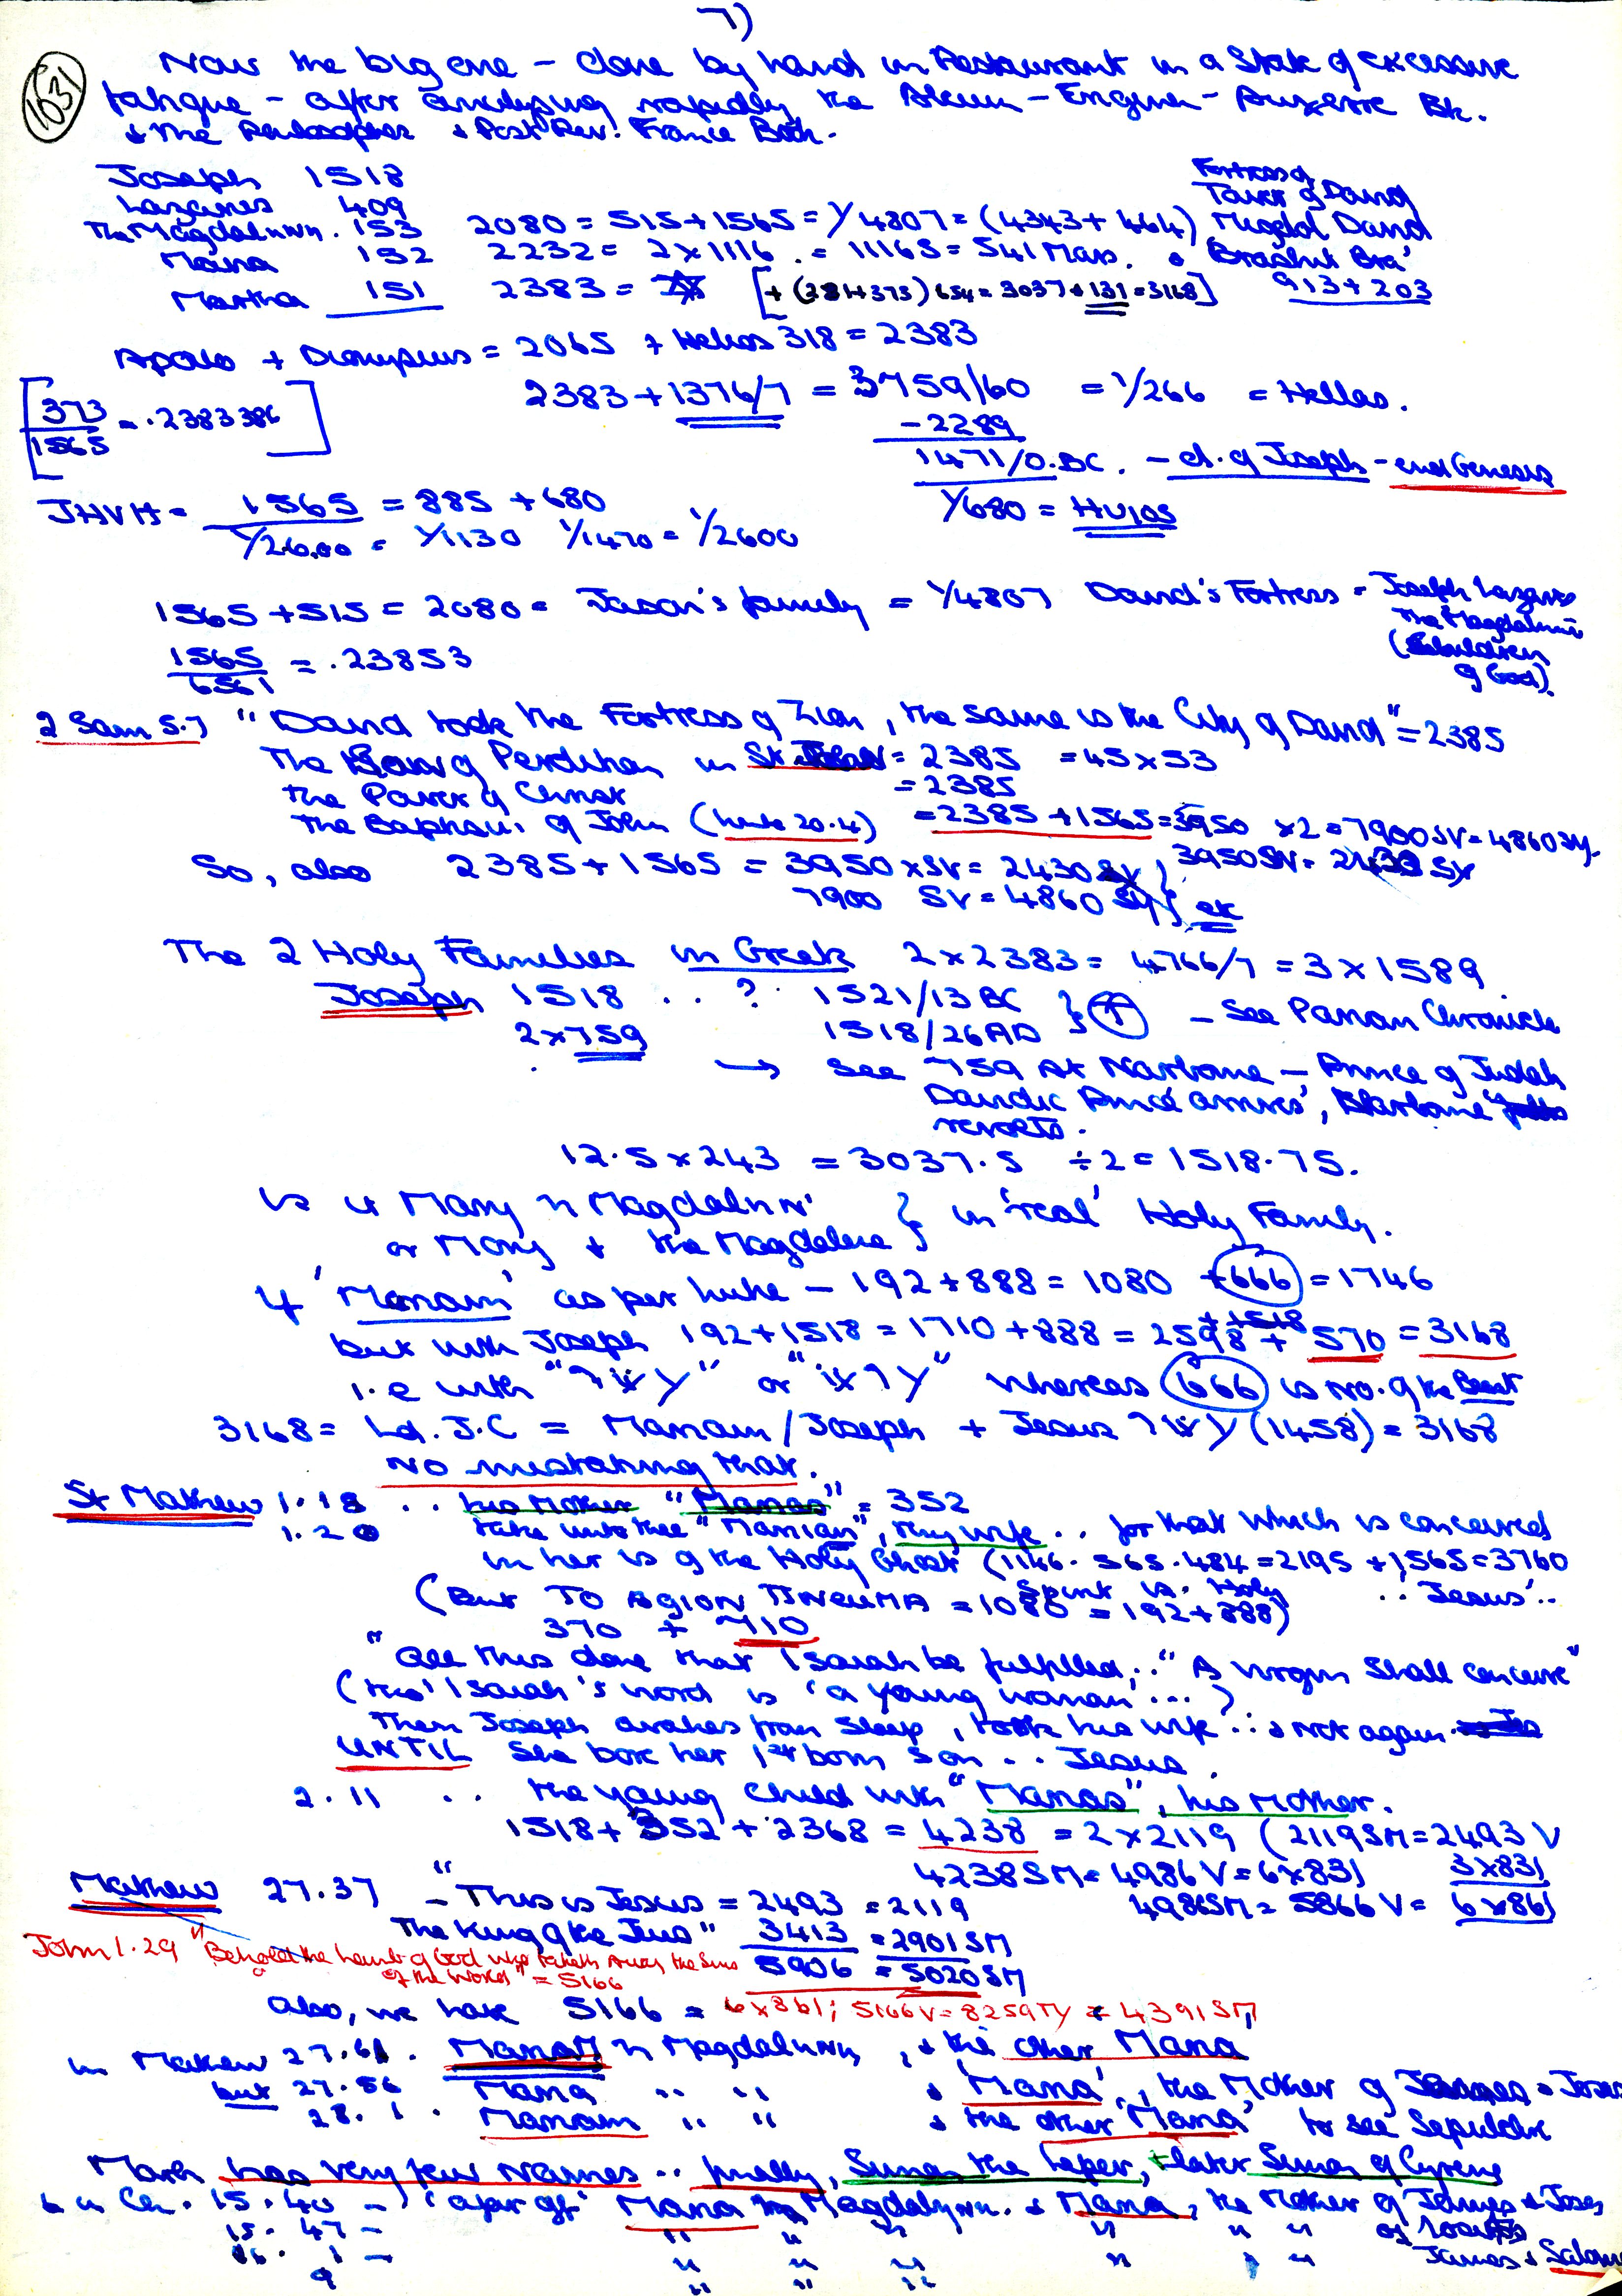 7)
1031
Now the big one - done by hand in Restaurant in a State of excessive
fatigue - after analysing rapidly the Alcuin - Engine - Auxerre Bk.
+ the Philosopher + Post Rev. France Book.
Joseph 1518
Lazarus 409
The Magdalhnh. 153 2080 = 515+1565 = 1/4807 = (4343+464) Migdol David
Fortress of
Tower of David
Maria 152 2232 = 2x1116 = 11165 = 541 Mars. & 'Brashit Bra'
Martha 151 2383 = [+ (281+373) 654 = 3037 + 131 = 3168] 913+203
Apollo + Dionysius = 2065 + Helios 318 = 2383
[373/1565 = .2383386] 2383 + 1376/7 = 3759/60 = 1/266 = Hellas.
-2289
1471/0.BC. - d. of Joseph - end Genesis
JHVH = 1565 = 885 + 680 1/680 = HUIOS
1/26.00 = 1/1130 1/1470 = 1/2600
1565 + 515 = 2080 = Jason's family = 1/4807 David's Fortress = Joseph Lazarus
The Magdalene
(children
of God).
1565/6561 = .23853
2 Sam 5.7 "David took the Fortress of Zion, the same is the City of David" = 2385
The Son of Perdition in St John = 2385 = 45x53
the Power of Christ = 2385
The Baptism of John (Luke 20.4) = 2385 + 1565 = 3950 x2 = 7900 SV = 4860 SY
So, also 2385 + 1565 = 3950 x SV = 2430 SY } 3950 SV = 2430 SY
7900 SV = 4860 SY }
The 2 Holy Families in Greek 2x2383 = 4766/7 = 3x1589
Joseph 1518 .. ? 1521/13 BC } - See Parian Chronicle
2x759 1518/26AD }
→ See 759 At Narbonne - Prince of Judah
Davidic Prince arrives', Narbonne
revolts.
12.5 x 243 = 3037.5 ÷2 = 1518.75.
Is it Mary h Magdalhnh' } in 'real' Holy Family.
or Mary + the Magdalene }
If 'Mariam' as per Luke - 192 + 888 = 1080 + 666 = 1746
+ 1518
but with Joseph 192+1518 = 1710 + 888 = 2598 + 570 = 3168
i.e with " " or " " whereas 666 is No. of the Beast
3168 = Ld. J.C = Mariam/Joseph + Jesus (1458) = 3168
No mistaking that.
St Mathew 1.18 .. his Mother "Marias" = 352
1.20 take unto thee "Mariam", thy wife .. for that which is conceived
in her is of the Holy Ghost (1146. 565. 484 = 2195 + 1565 = 3760
(But TO AGION PNEUMA = 1080 = 192+888) .. 'Jesus'..
Spirit is Holy
370 + 710
"All this done that Isaiah be fulfilled .. "A virgin shall conceive"
(tho' Isaiah's word is 'a young woman ...)
Then Joseph awakes from sleep, took his wife .. & not again
UNTIL She bore her 1st born son .. Jesus.
2.11 .. the young child with "Marias", his Mother.
1518 + 352 + 2368 = 4238 = 2x2119 (2119SM = 2493 V
4238SM = 4986 V = 6x831 3x831
Mathew 27.37 - "This is Jesus = 2493 = 2119 4986SM = 5866 V = 6x861
The King of the Jews" 3413 = 2901SM
5906 = 5020SM
John 1.29 "Behold the Lamb of God who taketh Away the Sins
of the World" = 5166
Also, we have 5166 = 6x861; 5166V = 8259TY = 4391SM
in Mathew 27.61. Mariam h Magdalhnh, & the other Maria
but 27.56 Maria " " & 'Maria', the Mother of James & Joses
28.1. Mariam " " & the other 'Maria' to see Sepulchre
Mark has very few Names .. finally, Simon the Leper, + later Simon of Cyrene
6 in Ch. 15.40 - 'afar off' Maria h Magdalhnh. & Maria, the Mother of James & Joses
15.47 - " " " " " " of Joses
16.1 - " " " " " " James & Salome
9 " " "